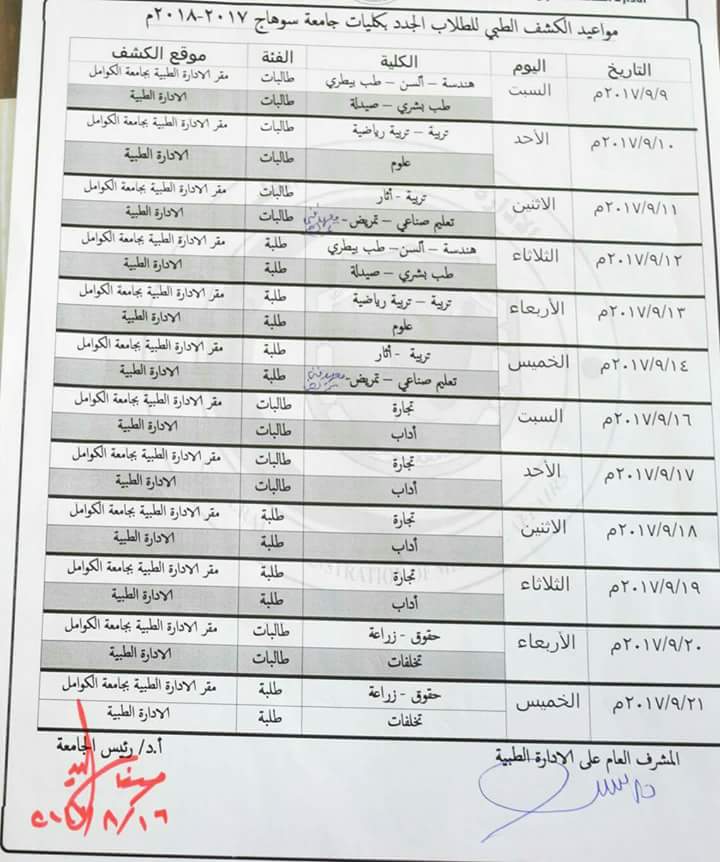 مواعيد الكشف الطبي للطلاب الجدد بكليات جامعة سوهاج ٢٠١٧-٢٠١٨م
التاريخ اليوم الكلية الفئة موقع الكشف
٢٠١٧/٩/٩م السبت هندسة – ألسن – طب بيطري طالبات مقر الادارة الطبية بجامعة الكوامل
طب بشري – صيدلة طالبات الادارة الطبية
٢٠١٧/٩/١٠م الأحد تربية – تربية رياضية طالبات مقر الادارة الطبية بجامعة الكوامل
علوم طالبات الادارة الطبية
٢٠١٧/٩/١١م الاثنين تربية - أثار طالبات مقر الادارة الطبية بجامعة الكوامل
تعليم صناعي – تمريض- طالبات الادارة الطبية
٢٠١٧/٩/١٢م الثلاثاء هندسة – ألسن– طب بيطري طلبة مقر الادارة الطبية بجامعة الكوامل
طب بشري – صيدلة طلبة الادارة الطبية
٢٠١٧/٩/١٣م الأربعاء تربية – تربية رياضية طلبة مقر الادارة الطبية بجامعة الكوامل
علوم طلبة الادارة الطبية
٢٠١٧/٩/١٤م الخميس تربية - أثار طلبة مقر الادارة الطبية بجامعة الكوامل
تعليم صناعي – تمريض- طلبة الادارة الطبية
٢٠١٧/٩/١٦م السبت تجارة طالبات مقر الادارة الطبية بجامعة الكوامل
أداب طالبات الادارة الطبية
٢٠١٧/٩/١٧م الأحد تجارة طالبات مقر الادارة الطبية بجامعة الكوامل
أداب طالبات الادارة الطبية
٢٠١٧/٩/١٨م الاثنين تجارة طلبة مقر الادارة الطبية بجامعة الكوامل
أداب طلبة الادارة الطبية
٢٠١٧/٩/١٩م الثلاثاء تجارة طلبة مقر الادارة الطبية بجامعة الكوامل
أداب طلبة الادارة الطبية
٢٠١٧/٩/٢٠م الأربعاء حقوق - زراعة طالبات مقر الادارة الطبية بجامعة الكوامل
تخلفات طالبات الادارة الطبية
٢٠١٧/٩/٢١م الخميس حقوق - زراعة طلبة مقر الادارة الطبية بجامعة الكوامل
تخلفات طلبة الادارة الطبية
المشرف العام على الادارة الطبية أ.د/ رئيس الجامعة